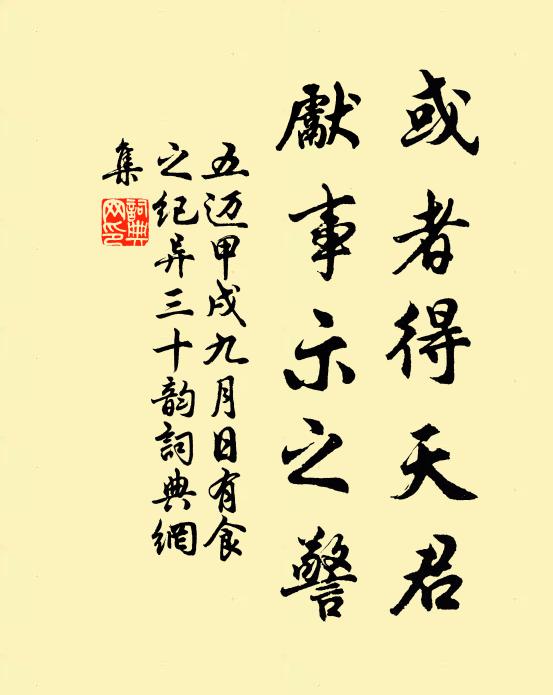 或者得天君
獻事示之警
五迈甲戌九月日有食
之纪异三十韵詞典網
集
詞典網印